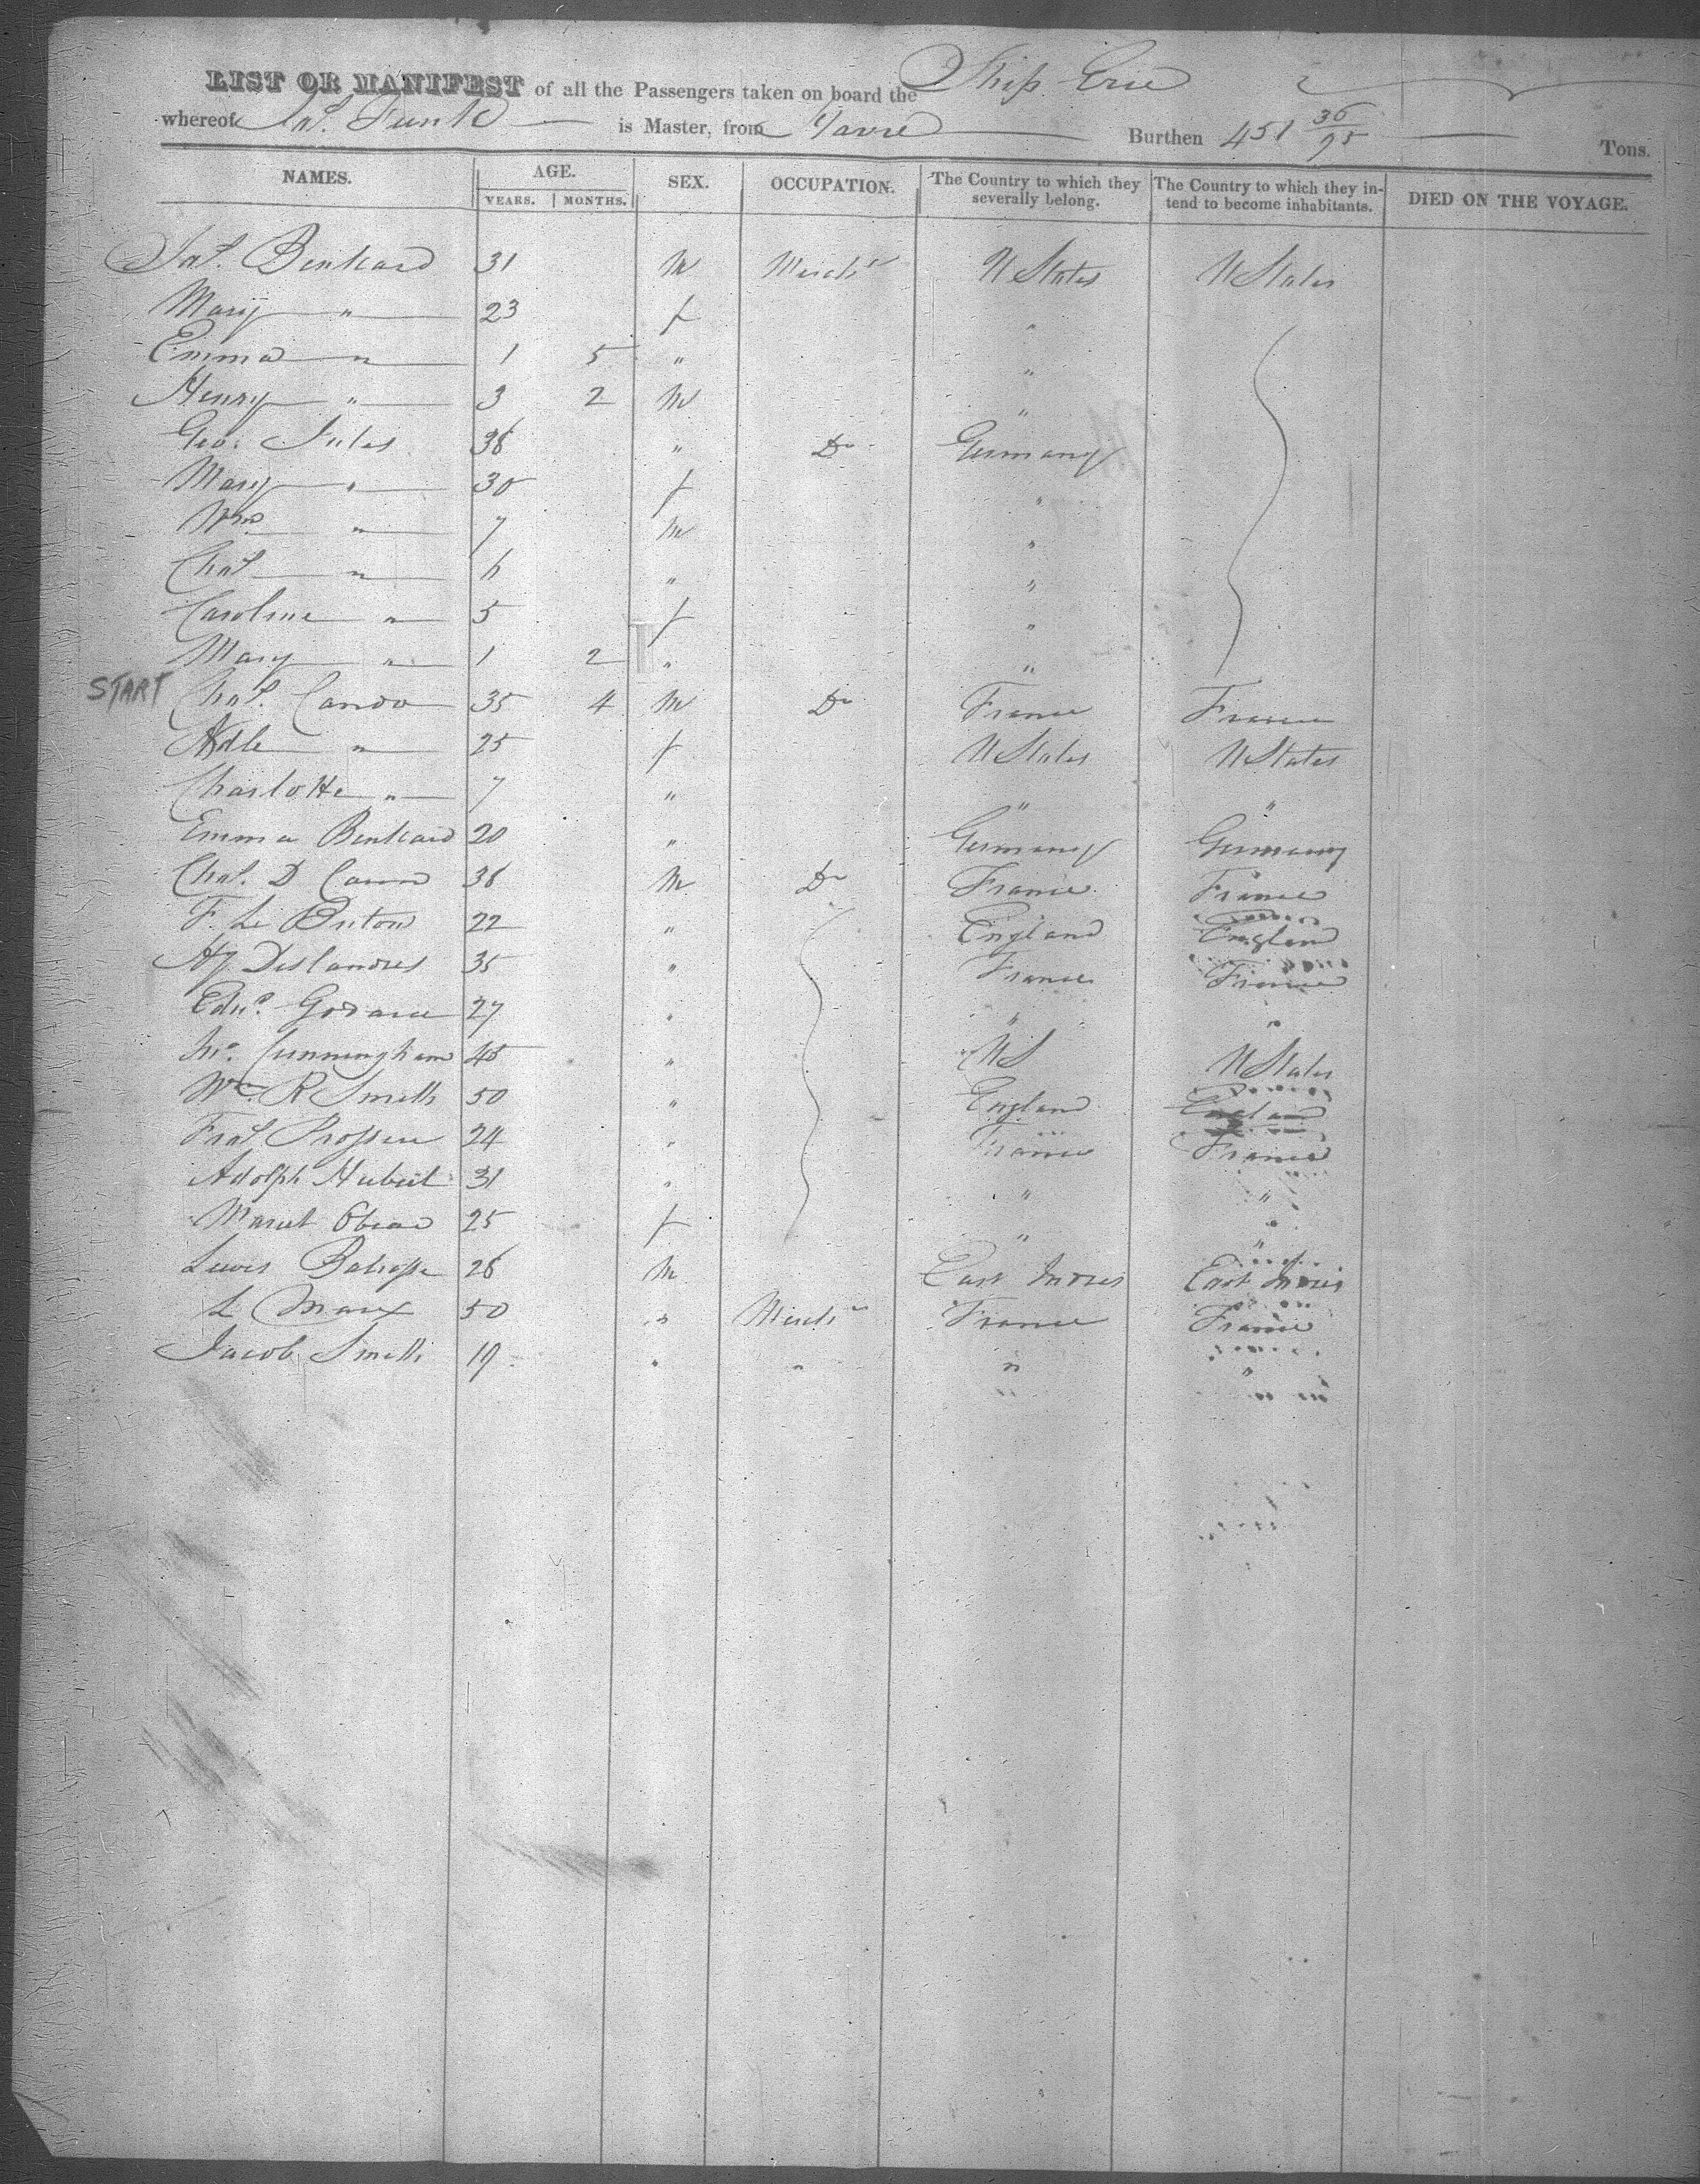 LIST OR MANIFEST of all the Passengers taken on board the Ship Erie
whereof Jas. Funk is Master, from Havre Burthen 451 36/95 Tons.
NAMES. AGE. SEX. OCCUPATION. The Country to which they severally belong. The Country to which they intend to become inhabitants. DIED ON THE VOYAGE.
YEARS. MONTHS.
Jas. Benkard 31 M Mercht U States U States
Mary " 23 f "
Emma " 1 5 " "
Henry " 3 2 M "
Geo. Jules 36 " Do Germany
Mary " 30 f "
Wm " 7 M "
Chas " 6 " "
Caroline " 5 f "
Mary " 1 2 " "
START Chas. Canda 35 4 M Do France France
Adle " 25 f U States U States
Charlotte " 7 " " "
Emma Benkard 20 " Germany Germany
Chas. D 36 M Do France France
F. Le Briton 22 " England England
Hy. Deslandres 35 " France France
Edwd. 27 " " "
Jno. Cunningham 45 " U S U States
Wm. R Smith 50 " England England
Fras 24 " France France
Adolph Hubert 31 " " "
25 f " "
Lewis 26 M East Indies East Indies
L Marx 50 " Mercht France France
Jacob Smith 19 " " " "